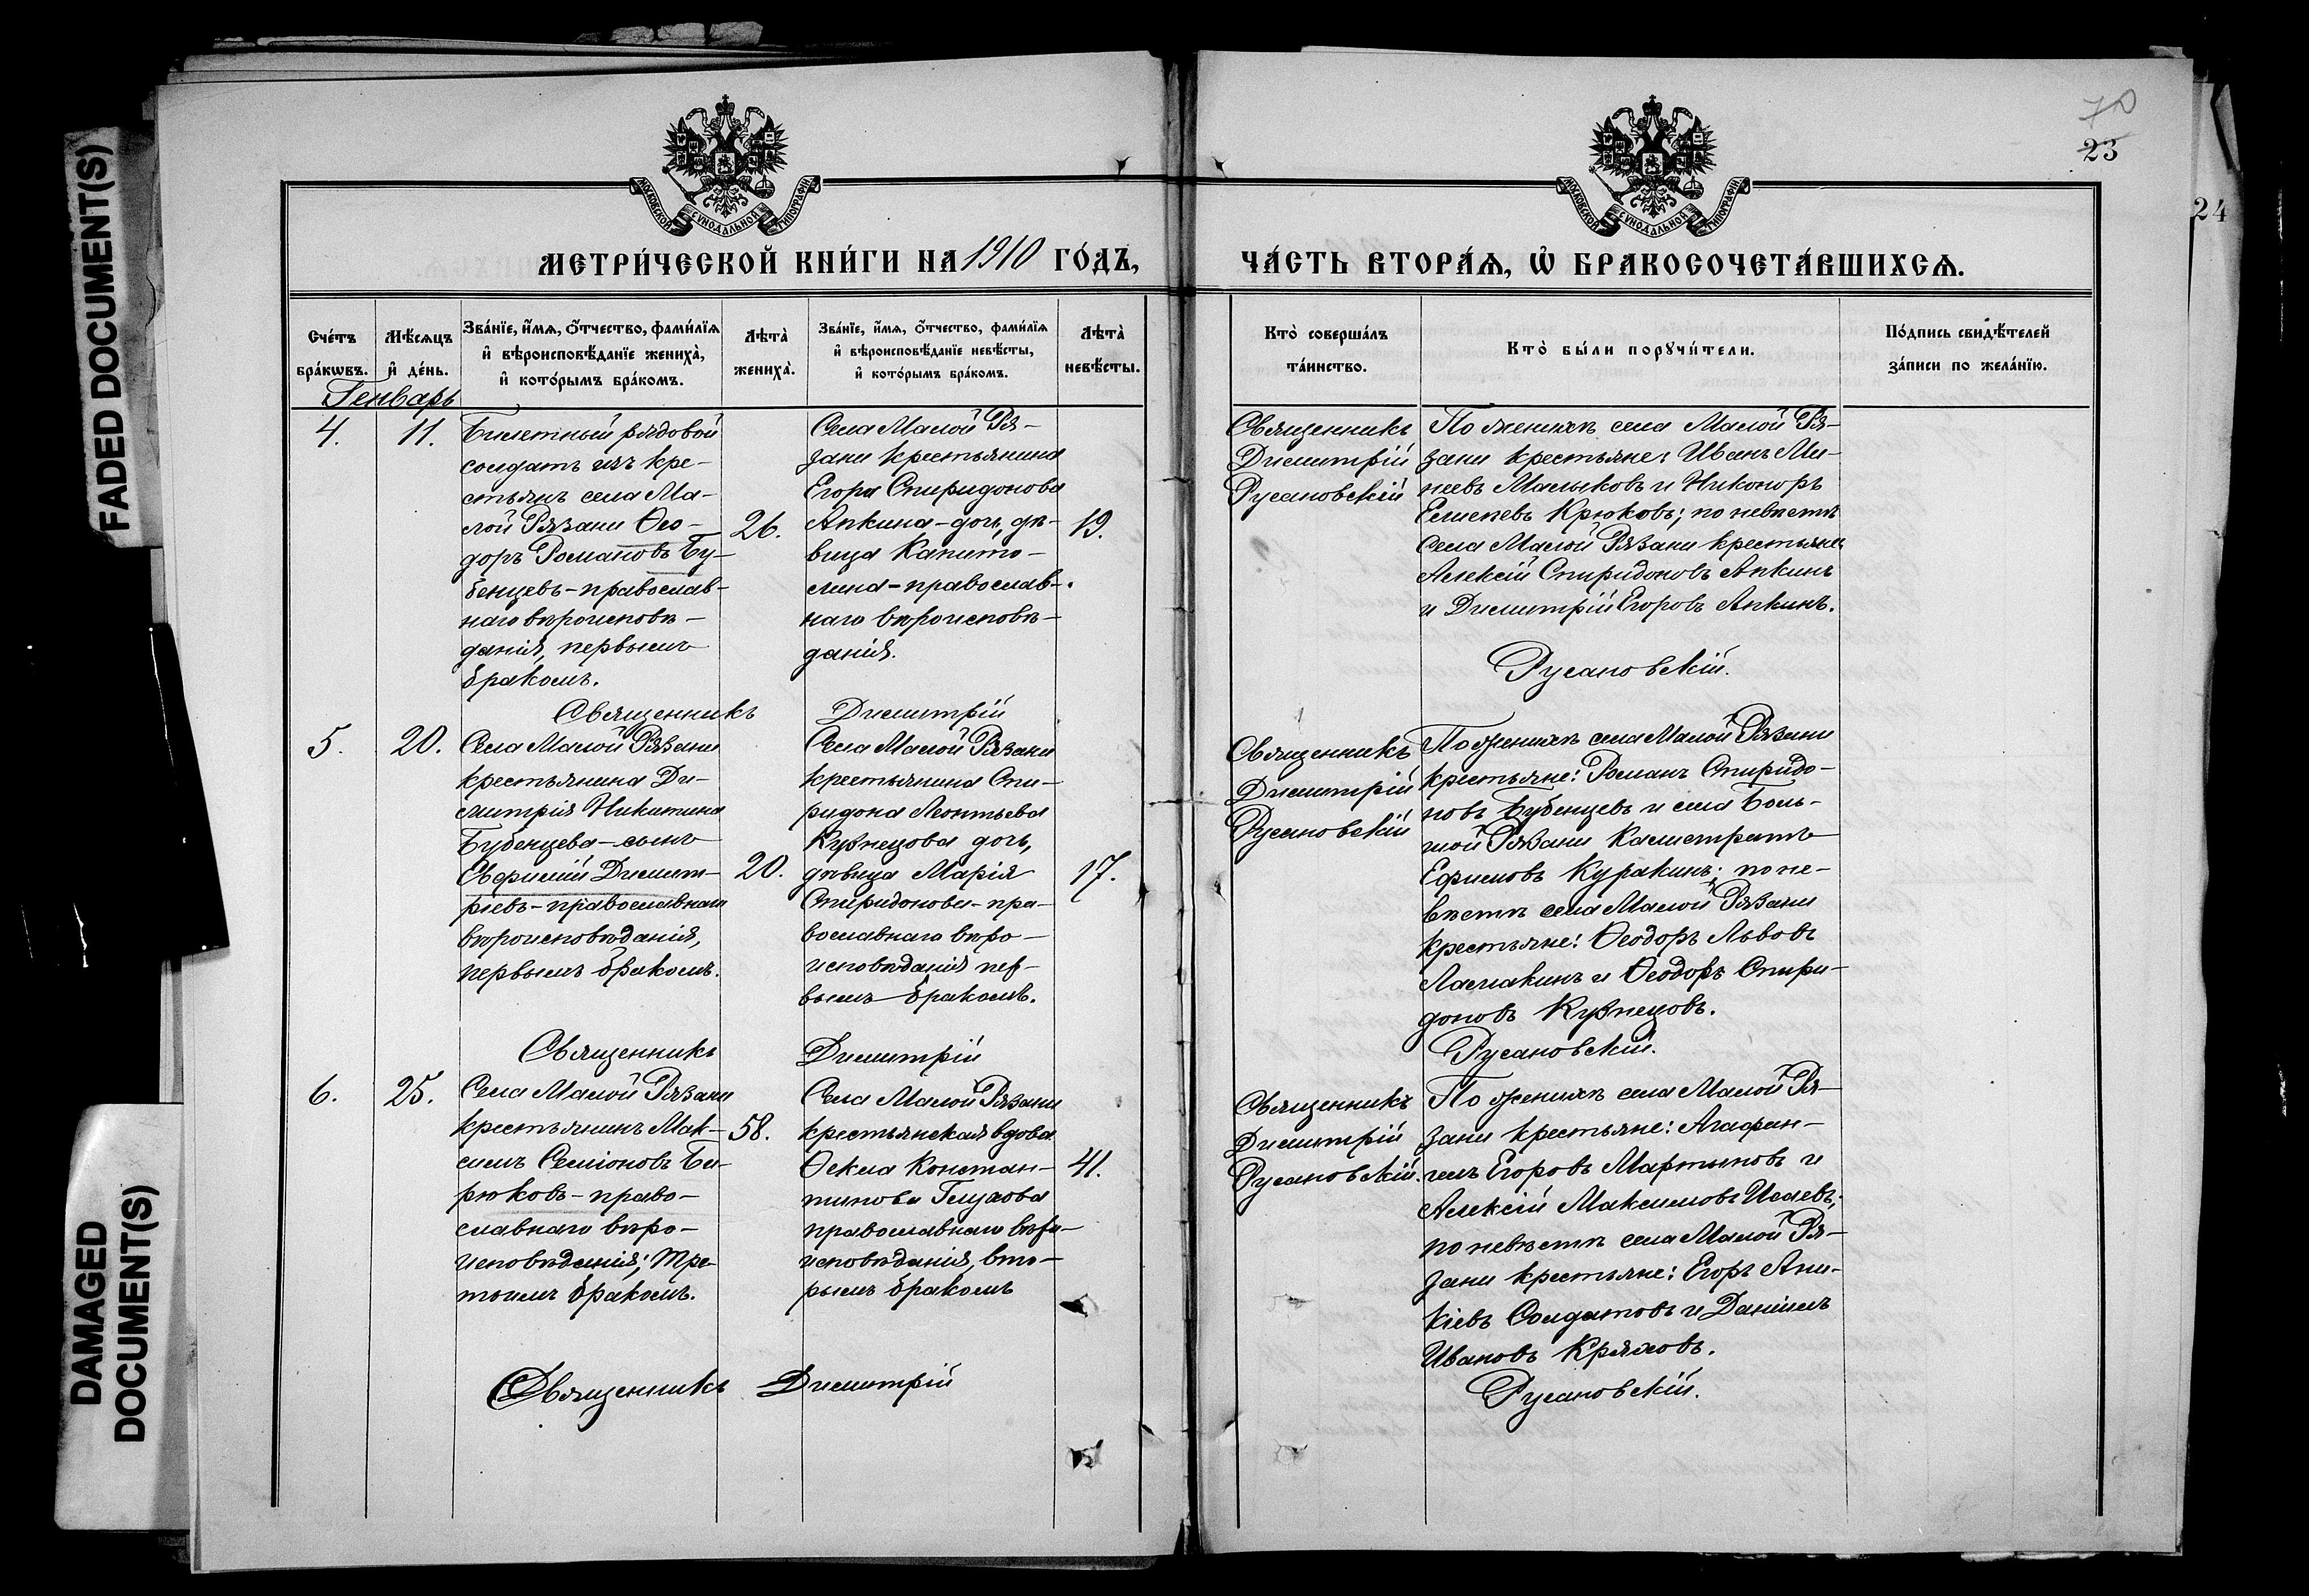 FADED DOCUMENT(S)
DAMAGED
DOCUMENT(S)
МОСКОВСКОЙ СѴНОДАЛЬНОЙ ТИПОГРАФІИ
МЕТРИ́ЧЕСКОЙ КНИ́ГИ НА 1910 ГО́ДЪ,
Сче́тъ
бра́кωвъ.
Мѣ́сѧцъ
и҆ де́нь.
Зва́нїе, и҆́мѧ, ѻ҆́тчество, фами́лїѧ
и҆ вѣроисповѣ́данїе жениха̀,
и҆ кото́рымъ бра́комъ.
Лѣта̀
жениха̀.
Зва́нїе, и҆́мѧ, ѻ҆́тчество, фами́лїѧ
и҆ вѣроисповѣ́данїе невѣ́сты,
и҆ кото́рымъ бра́комъ.
Лѣта̀
невѣ́сты.
Генварь
4.
11.
Билетный рядовой
солдатъ изъ кре-
стьянъ села Ма-
лой Рязани Ѳео-
доръ Романовъ Бу-
бенцевъ-православ-
наго вѣроисповѣ-
данія, первымъ
бракомъ.
26.
Села Малой Ря-
зани крестьянина
Егора Спиридонова
Апкина-дочь, дѣ-
вица Капито-
лина-православ-
наго вѣроисповѣ-
данія.
19.
Священникъ Димитрій
5.
20.
Села Малой Рязани
крестьянина Ди-
митрія Никитина
Бубенцева-сынъ
Евфимій Димит-
ріевъ-православнаго
вѣроисповѣданія,
первымъ бракомъ.
20.
Села Малой Рязани
крестьянина Спи-
ридона Леонтьева
Кузнецова дочь,
дѣвица Марія
Спиридонова-пра-
вославнаго вѣро-
исповѣданія пер-
вымъ бракомъ.
17.
Священникъ Димитрій
6.
25.
Села Малой Рязани
крестьянинъ Мак-
симъ Семіоновъ Би-
рюковъ-право-
славнаго вѣро-
исповѣданія; тре-
тьимъ бракомъ.
58.
Села Малой Рязани
крестьянская вдова
Ѳекла Констан-
тинова Глухова
православнаго вѣро-
исповѣданія, вто-
рымъ бракомъ
41.
Священникъ Димитрій
70
23
24
МОСКОВСКОЙ СѴНОДАЛЬНОЙ ТИПОГРАФІИ
ЧА́СТЬ ВТОРА́Ѧ, Ѡ҆ БРАКОСОЧЕТА́ВШИХСѦ.
Кто̀ соверша́лъ
та́инство.
Кто̀ бы́ли порꙋчи́тели.
По́дпись свидѣ́телей
за́писи по жела́нїю.
Священникъ
Димитрій
Русановскій
По женихѣ села Малой Ря-
зани крестьяне: Иванъ Ми-
неевъ Малыковъ и Никоноръ
Елисеевъ Крюковъ; по невѣстѣ
Села Малой Рязани крестьяне
Алексій Спиридоновъ Апкинъ
и Димитрій Егоровъ Апкинъ.
Русановскій.
Священникъ
Димитрій
Русановскій
По женихѣ села Малой Рязани
крестьяне: Романъ Спиридо-
новъ Бубенцевъ и села Боль-
шой Рязани Калистратъ
Ефимовъ Куракинъ; по не-
вѣстѣ села Малой Рязани
крестьяне: Ѳеодоръ Львовъ
Ламакинъ и Ѳеодоръ Спири-
доновъ Кузнецовъ.
Русановскій.
Священникъ
Димитрій
Русановскій.
По женихѣ села Малой Ря-
зани крестьяне: Агафан-
гелъ Егоровъ Мартыновъ и
Алексій Максимовъ Исаевъ;
по невѣстѣ села Малой Ря-
зани крестьяне: Егоръ Ани-
кіевъ Солдатовъ и Даніилъ
Ивановъ Кряховъ.
Русановскій.